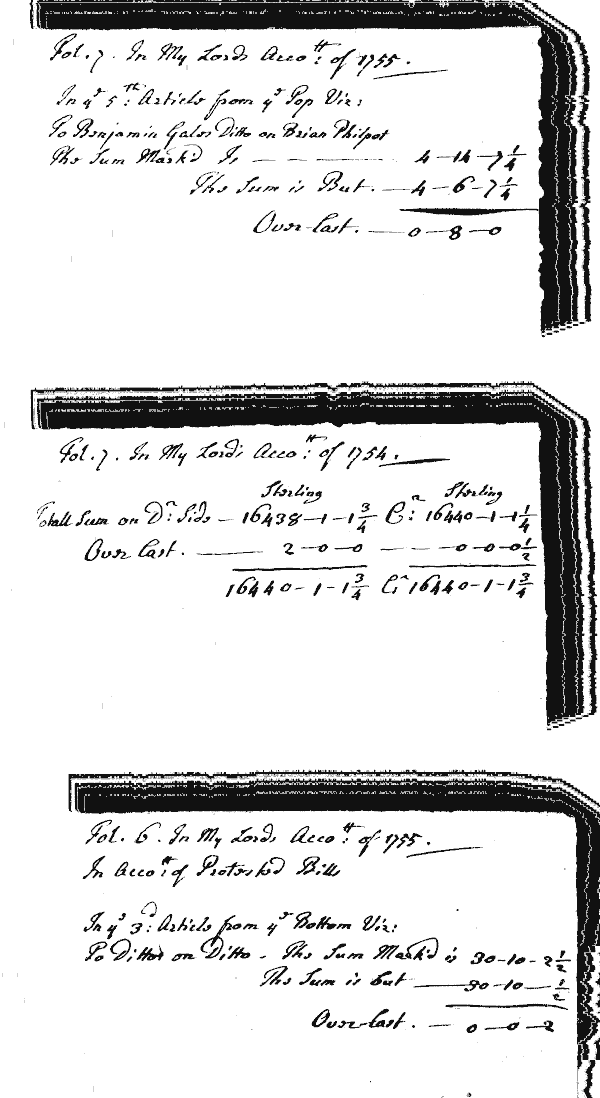 Fol. 7. In My Lords Acco:tt of 1755.
In ye 5th: Article from ye Top Viz:
To Benjamin Gales Ditto on Brian Philpot
The Sum Mark'd Is — — — — 4—14—7 1/4
The Sum is But. — 4—6—7 1/4
Over-cast. — 0—8—0
Fol. 7. In My Lords Acco:tt of 1754.
Sterling Sterling
Totall Sum on Dr: Side — 16438—1—1 3/4 Cr: 16440—1—1 1/4
Over Cast. — 2—0—0 — — 0—0—0 1/2
16440—1—1 3/4 Cr 16440—1—1 3/4
Fol. 6. In My Lords Acco:tt of 1755.
In Acco:tt of Protested Bills
In ye 3d: Article from ye Bottom Viz:
To Ditto on Ditto - The Sum Mark'd is 30—10—2 1/2
The Sum is but — 30—10— 1/2
Over-cast. — 0—0—2